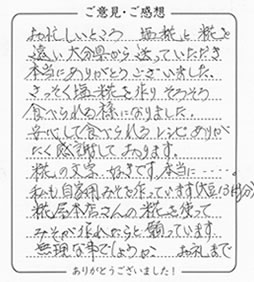 ご意見・ご感想
お忙しいところ 塩糀と糀を
遠い大分県から送っていただき
本当にありがとうございました。
さっそく塩糀を作り そろそろ
食べられる様になりました。
安心して食べられる レシピ ありが
たく感謝しております。
糀の文字 好きです。本当に・・・・。
私も自家用みそを作っています
糀屋本店さんの糀を使って
みそが作れたらと願っています
無理な事でしょうか お礼まで
ありがとうございました!